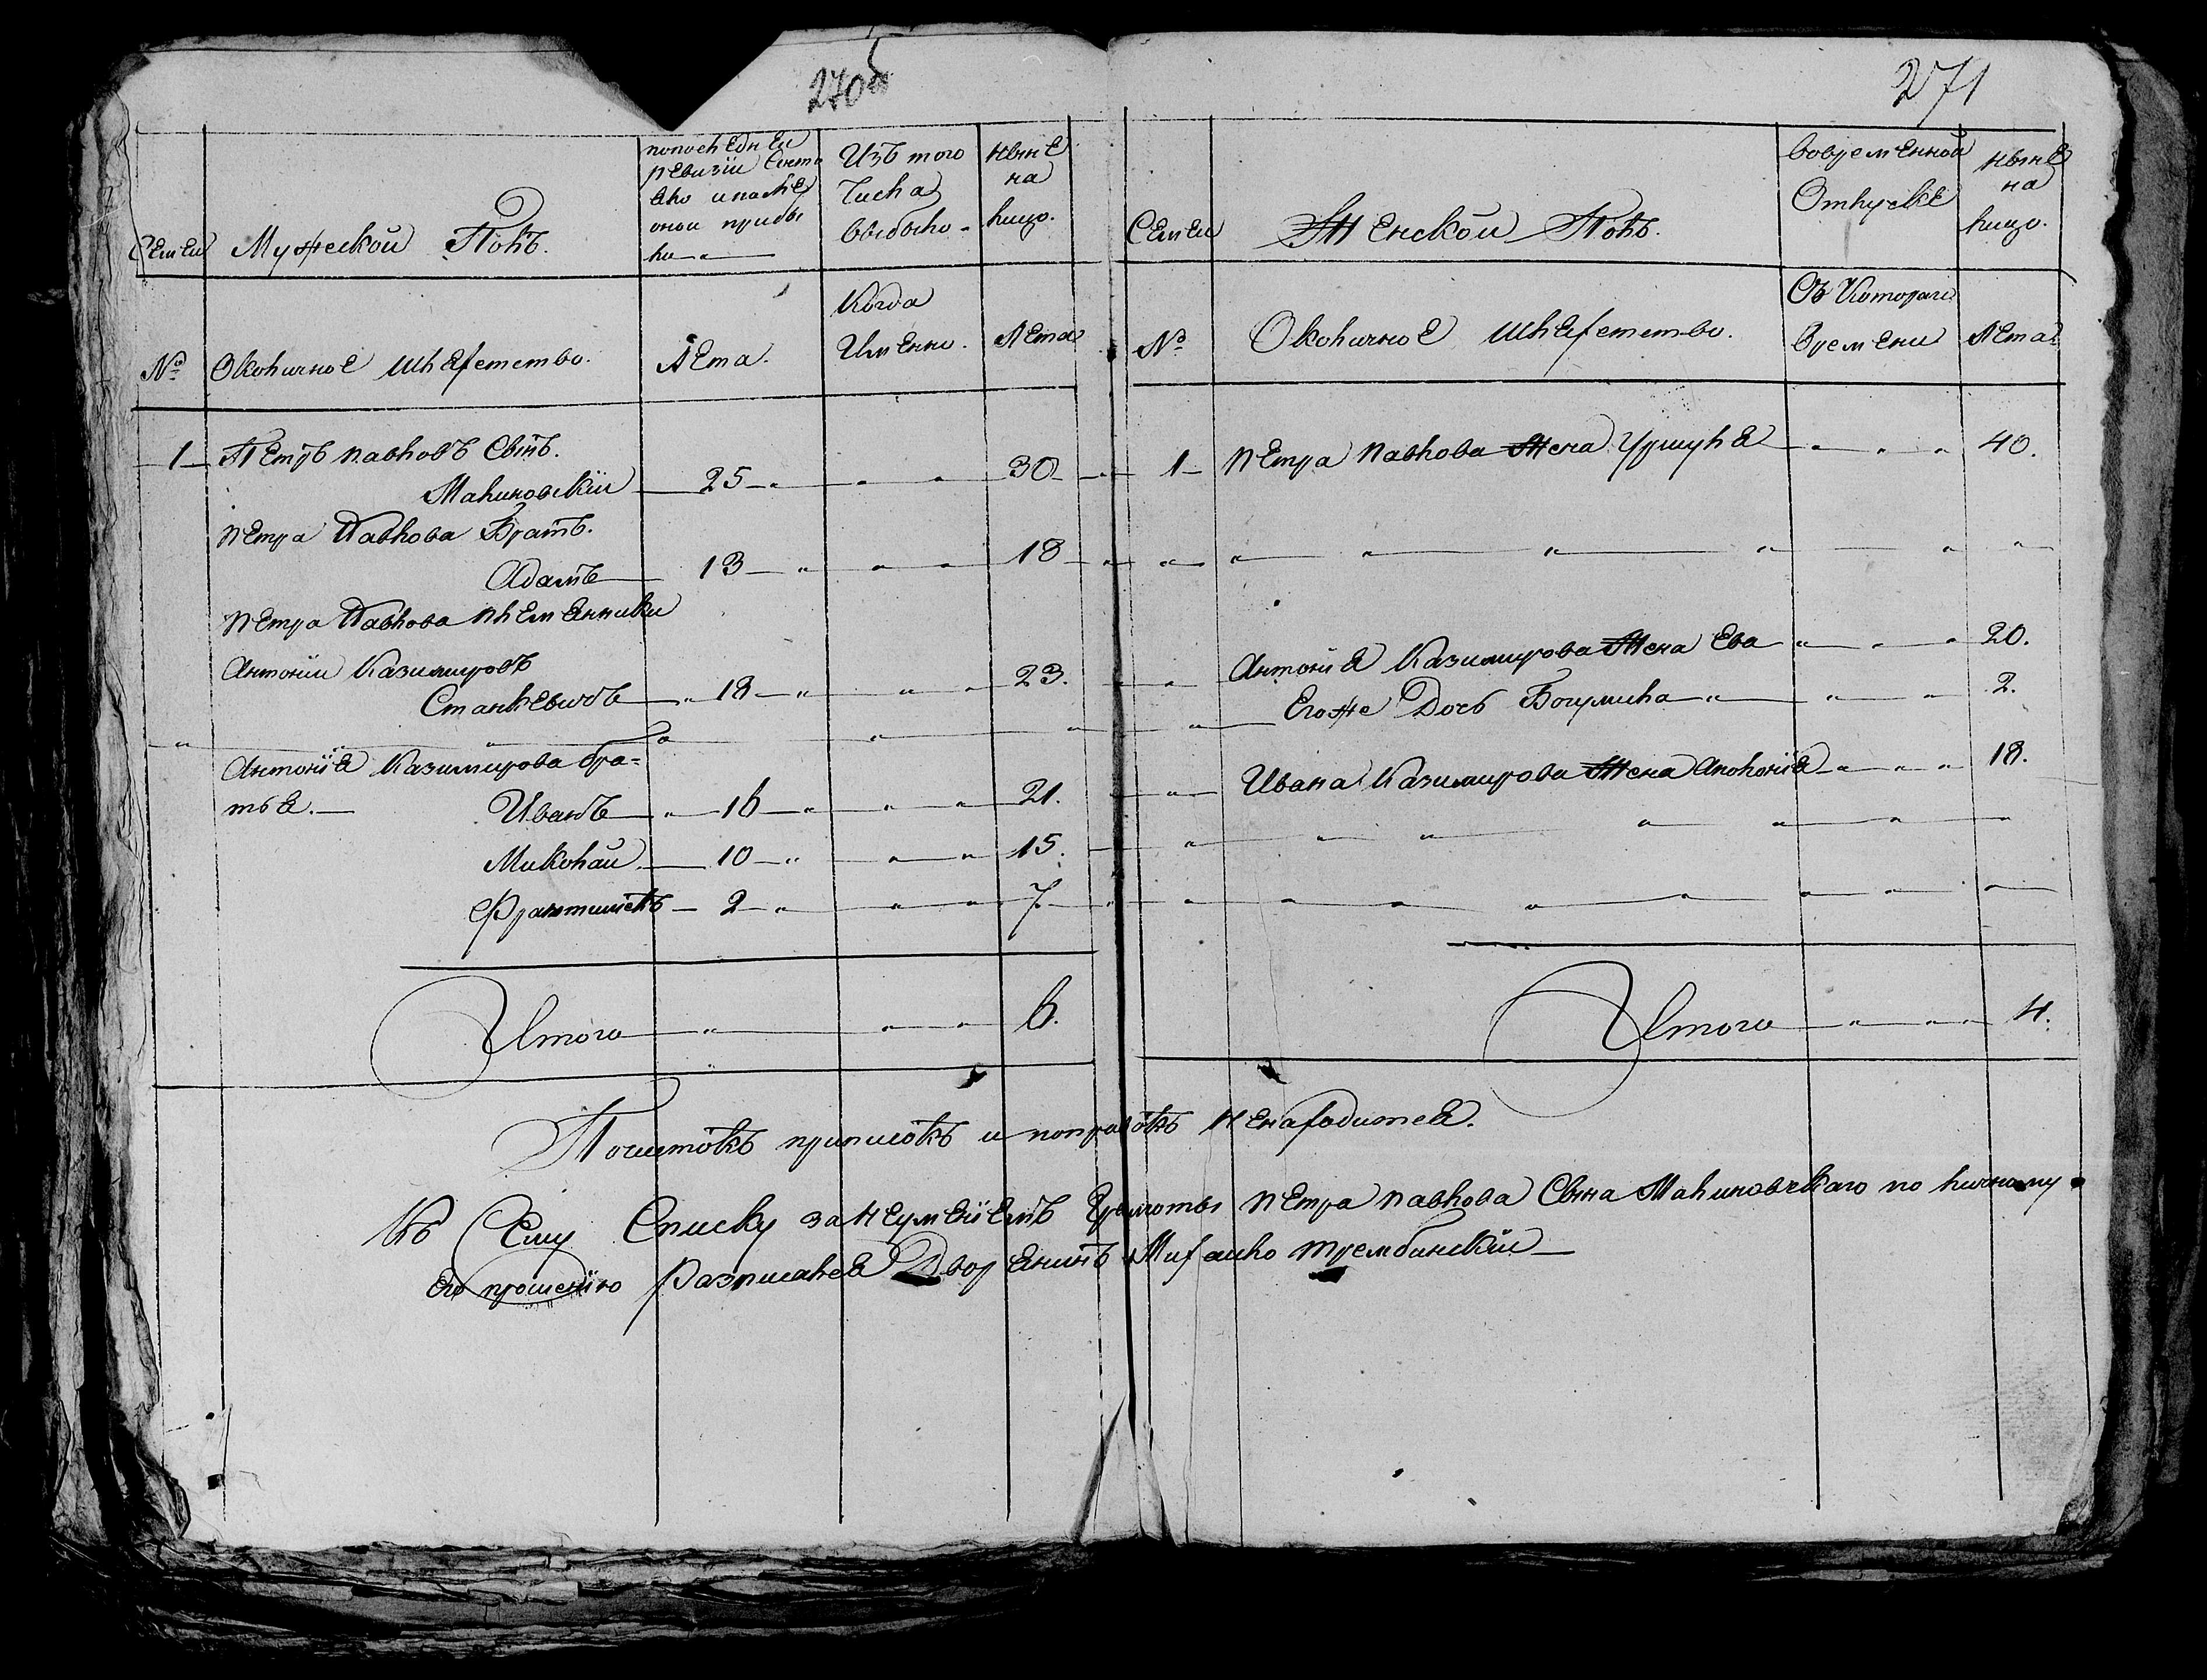 270об
Семеи
Мужеской Полъ.
попоследнеи
ревизiи Состо
яло ипосле
онои прибы
ли
Изъ того
Числа
выбыло
ныне
на
лицо.
№
Околичное шляхетство.
Лета.
Когда
Именно.
Лета
1 Петръ павловъ Сынъ.
Малиновскiи 25 30
петра Павлова Братъ.
Адамъ 13 18
петра Павлова племянники
Антонiи Казимировъ
Станкевичъ 18 23.
Антонiя Казимирова бра=
тья.
Иванъ 16 21.
Миколай 10 15.
Франтишекъ 2 7
Итого 6.
271
Семеи
Женской Полъ.
вовременной
Отлуске
ныне
на
лицо.
№
Околичное шляхетство.
Съ Котораго
времени
Лета
1 петра павлова Жена Уршуля 40.
Антонiя Казимирова Жена Ева 20.
Егоже Дочь Богумила 2.
Ивана Казимирова Жена Аполонiя 18.
Итого 4.
Почистокъ приписокъ и поправокъ ненаходится.
Къ Сему Списку занеуменiемъ Грамоты петра павлова Сына Малиновскаго по личному
Его прошенiю Расписался Дворянинъ Михаило Трембинскiи